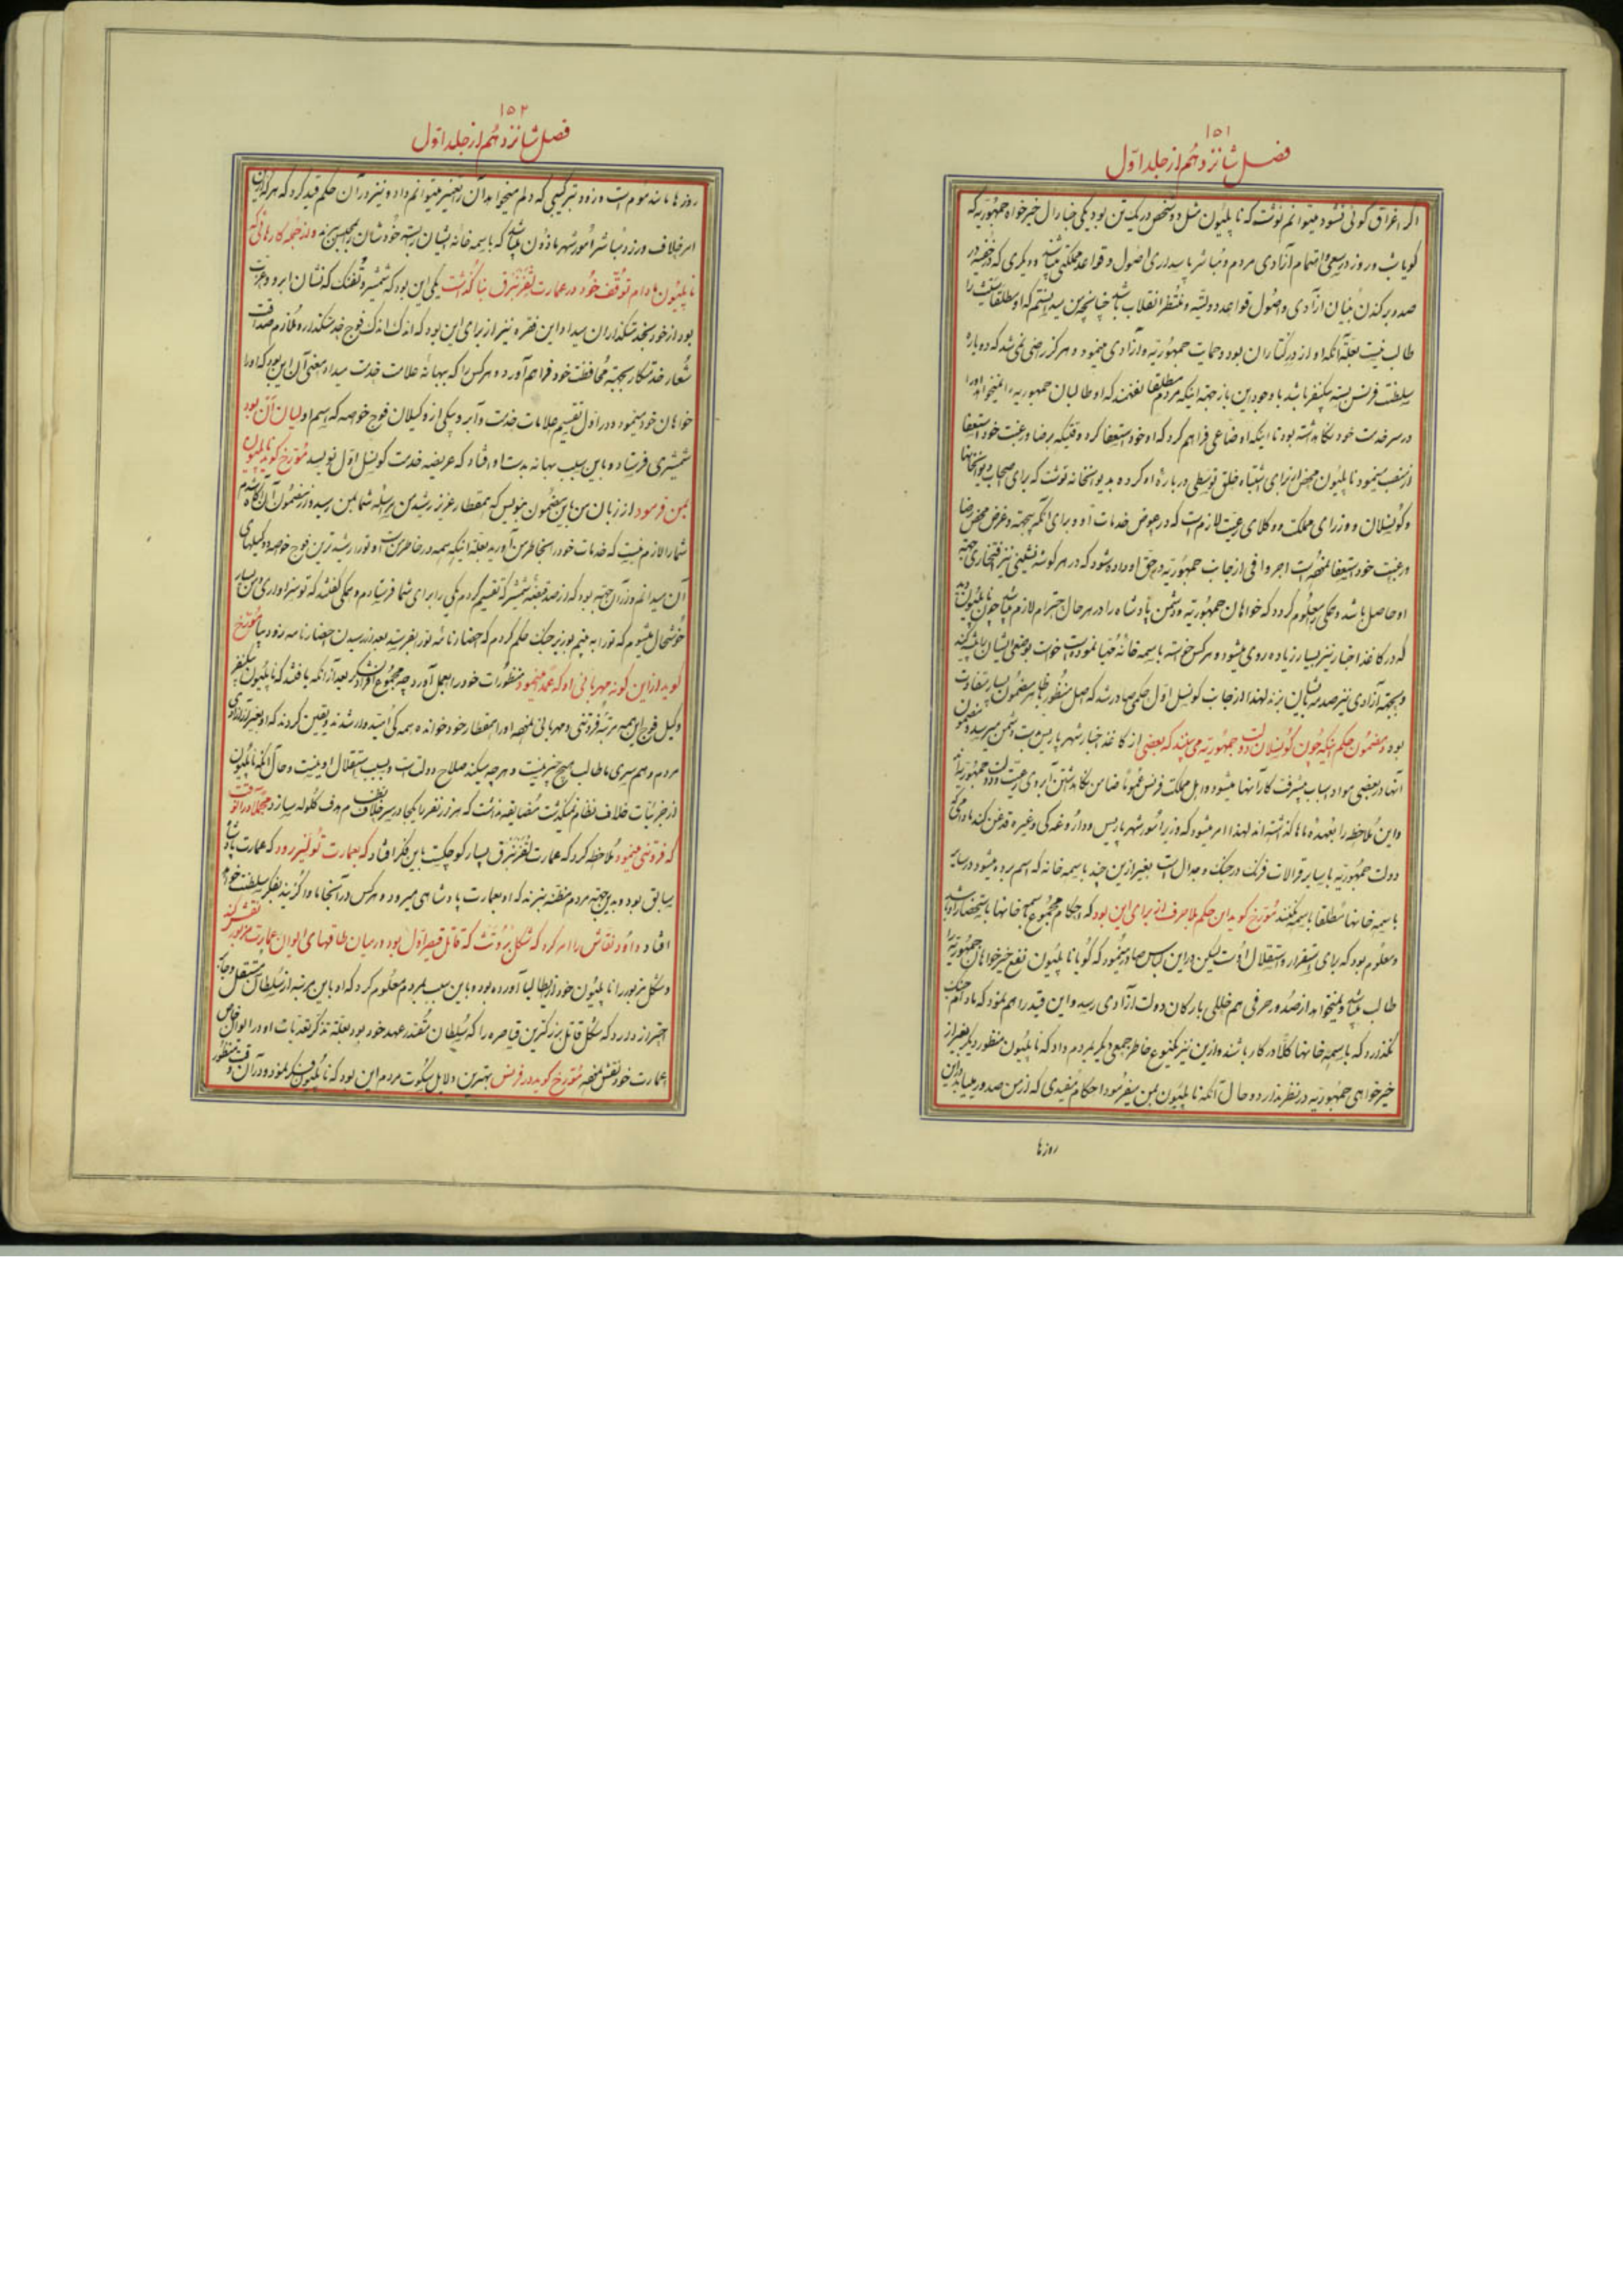 ١٥١
فصل شانزدهم از جلد اول
اگر اغراق گوئی نشود میتوانم نوشت که ناپلیون مثل دو شخص در یک تن بود یکی جنارال خیرخواه جمهوریه که
گویا شب و روز در سعی و اهتمام آزادی مردم و مباشر پاسداری اصول و قواعد مملکتی باشد و دیگری که در خفیه در
صدد برکندن بنیان آزادی و اصول قواعد دولتیه و منتظر انقلاب باشد چنانچه من میدانستم که او مطلقا سیئس را
طالب نیست بعلة آنکه او از در گناران بود و حمایت جمهوریه و آزادی مینمود و هرگز راضی نمی شد که دوباره
سلطنت فرنس بسته بیکنفر باشد با وجود این باز جهة اینکه مردم مطلقا نگفتند که او طالبان جمهوریه را نمیخواهد او را
در سر خدمت خود نگاه داشته بود تا اینکه اوضاعی فراهم کرد که او خود استعفا کرد وقتیکه برضا و رغبت خود استعفا
از منصب مینمود ناپلیون محض از برای اشتباه خلق توسطی در باره او کرده بدیوانخانه نوشت که برای اصحاب دیوانخانها
و کونسلان و وزرای مملکت و وکلای رعیت لازم است که در عوض خدمات او و برای آنکه بجهة و غرض محض رضا
و رغبت خود استعفا نموده است اجر وافی از جانب جمهوریه در حق او داده شود که در هر گوشه نشینی نیز افتخاری جهة
او حاصل باشد و همگی معلوم گردد که خواهان جمهوریه و دشمن پادشاه را در هر حال احترام لازم میباشد چون ناپلیون دید
که در کاغذ اخبار نیز بسیار زیاده روی میشود و هر کس خواسته باسمه خانهٔ مهیا نموده است خواست بوضعی ایشان را متفرق کند
و بجهة آزادی نیز صدمه بایشان نرزند لهذا از جانب کونسل اول حکمی صادر شد که اصل منظور با ظاهر مضمون بسیار تفاوت
بود و مضمون حکم اینکه چون کونسلان دولت جمهوریه می بینند که بعضی از کاغذ اخبار شهر پاریس بدست دشمن میرسد و مضمون
آنها در بعضی مواد اسباب پیشرفت کار آنها میشود و اهل مملکت فرنس عموما ضامن نگاهداشتن آبروی رعیت و دولت جمهوریه اند
و این ملاحظه را بعهده ماها گذاشته اند لهذا امر میشود که وزیر امور شهر پاریس و داروغه کی و غیره قدغن کنند مادامی که
دولت جمهوریه با سایر قرالات فرنک در جنک و جدال است بغیر از این چند باسمه خانه که اسم برده میشود در سایر
باسمه خانها مطلقا باسمه نکنند مورخ گوید این حکم بلا حرف از برای این بود که احکام مجموع باسمه خانها باستحضار او باشد
و معلوم بود که برای استقرار و استقلال اوست لیکن در این لباس صادر مینمود که گویا ناپلیون نفع خیرخواهان جمهوریه را
طالب میباشد و نمیخواهد از صدور حرفی هم خللی بارکان دولت آزادی رسد و این قید را هم نمود که مادام جنک
نگذرد که باسمه خانها کلا در کار باشند و ازین نیز یکنوع خاطر جمعی دیگر بمردم داد که ناپلیون منظور دیگر بغیر از
خیرخواهی جمهوریه در نظر ندارد و حال آنکه ناپلیون بمن میفرمود احکام مفیدی که از من صدور مییابد در این
روزها
١٥٢
فصل شانزدهم از جلد اول
روزها مانند موم است و زود بترکیبی که دلم میخواهد آن را تغییر میتوانم داد و نیز در آن حکم قید کرد که هر که از این
امر خلاف ورزد مباشر امور شهر ماذون میباشد که باسمه خانه ایشان را بسته خودشان را بمحبس برند و از جمله کارهائی که
ناپلیون مادام توقف خود در عمارت لغزنبرق بنا گذاشت یکی این بود که شمشیر و تفنک که نشان ابرو و عزت
بود از خود بخدمتگذاران میداد این فقره نیز از برای این بود که اندک اندک فوج خدمتگذار و ملازم صداقت
شعار خدمتکار بجهة محافظت خود فراهم آورد و هر کس را که ببهانهٔ علامت خدمت میداد معنی آن این بود که او را
خواهان خود مینمود و در اول تقسیم علامات خدمت و آبرو بیکی از وکیلان فوج خواصه که اسم او لیان آن بود
شمشیری فرستاد و باین سبب بهانه بدست او افتاد که عریضه خدمت کونسل اول نویسد مورخ گوید ناپلیون
بمن فرمود از زبان من باین مضمون بنویس که همقطار عزیز رشید من مراسله شما بمن رسید و از مضمون آن آگاه شدم
شما را لازم نیست که خدمات خود را بخاطر من آورید بعلة اینکه همه در خاطر من است و تو را رشیدترین فوج خواصه و وکیلهای
آن میدانم و از آن جهة بود که از صد قبضه شمشیر که تقسیم کردم یکی را برای شما فرستادم و همگی گفتند که تو سزاواری و من بسیار
خوشحال میشوم که تو را به بینم بوزیر جنک حکم کردم که احضار نامه تو را بفرستد بعد از رسیدن احضار نامه زود بیا مورخ
گوید از این گونه مهربانی او که عمدا مینمود منظورات خود را بعمل آورد چه مجموع افراد لشکر بعد از آنکه یافتند که ناپلیون بیکنفر
وکیل فوج این همه مرتبه فروتنی و مهربانی نموده او را همقطار خود خوانده همه کی امیدوار شدند و یقین کردند که او بغیر از آزادی
مردم و هم سری ما طالب هیچ چیز نیست و هر چه میکند صلاح دولت است و بسبب استقلال او نیست و حال آنکه ناپلیون
از جزئیات خلاف نظام نمیگذشت مضایقه نداشت که هزار نفر را یکجا در سر خلاف نظم هدف گلوله سازد مجملا در آن وقت
که فروتنی مینمود ملاحظه کرد که عمارت لغزنبرق بسیار کوچکست باین فکر افتاد که بعمارت تولیرز رود که عمارت پادشاهان
سابق بود و بدین جهة مردم مظنه نبرند که او بعمارت پادشاهی میرود و هر کس در آنجا ماوا گزیند بفکر سلطنت خواهد
افتاد داود نقاش را امر کرد که شکل بروتث که قاتل قیصر اول بود در میان طاقهای ایوان عمارت مزبور نقش کند
و شکل مزبور را ناپلیون خود از ایطالیا آورده بود و باین سبب بمردم معلوم کرد که او باین مرتبه از سلطان مستقل و جابر
احتراز دارد که شکل قاتل بزرگترین قیاصره را که سلطان مقتدر عهد خود بود بعلة تذکر تعدیات او در ایوان خاص
عمارت خود نقش نموده مورخ گوید در فرنس بهترین دلایل سکوت مردم این بود که ناپلیون فکر نمود و در آن وقت منظور